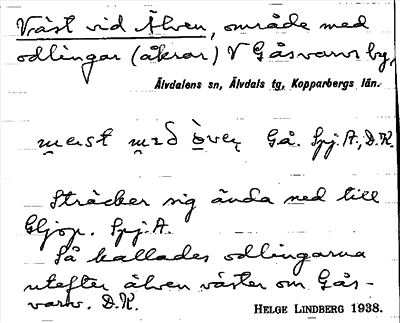 Väst vid Älven, område med
odlingar (åkrar) V Gåsvarvs by,
Älvdalens sn, Älvdals tg, Kopparbergs län.
Gå. Spj. A., D.K.
Sträcker sig ända ned till
Spj. A.
Så kallades odlingarna
utefter älven väster om Gås-
varv. D.K.
HELGE LINDBERG 1938.